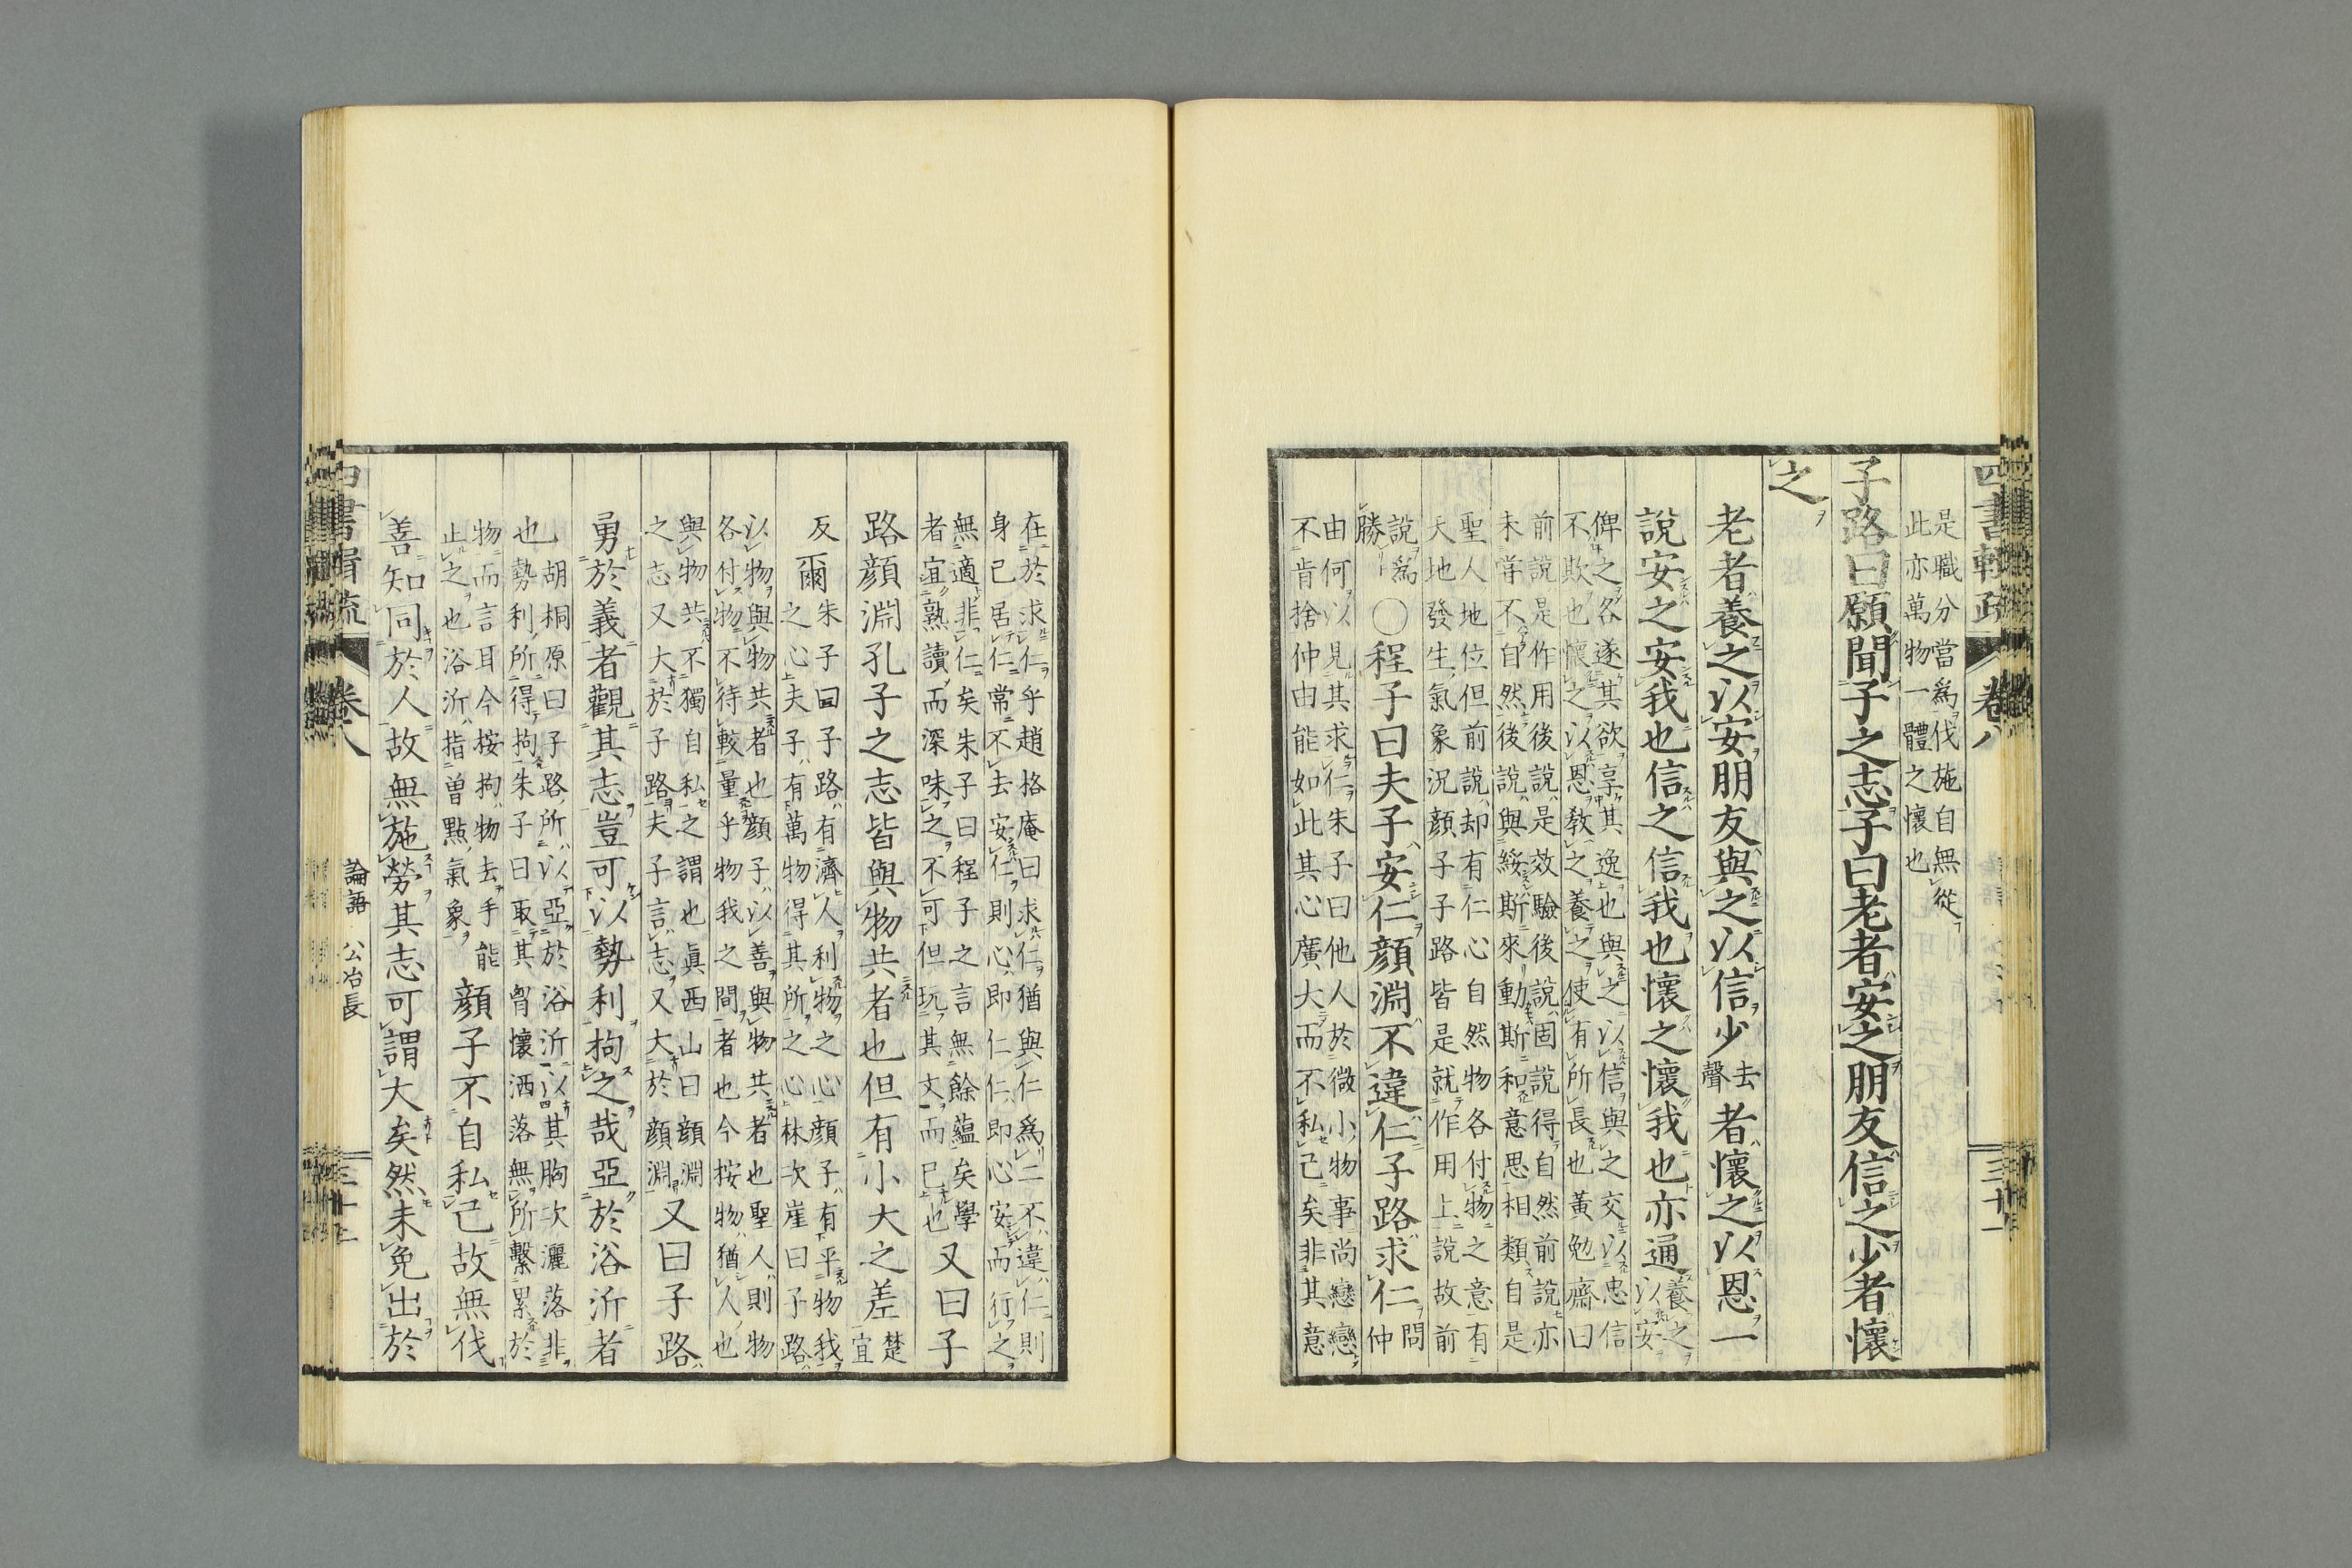 四書輯疏 卷八 三十一
是職分當爲伐施自無從
此亦萬物一體之懷也
子路曰願聞子之志子曰老者安之朋友信之少者懷
之
老者養之以安朋友與之以信少去聲者懷之以恩一
說安之安我也信之信我也懷之懷我也亦通養之以安
俾之各遂其欲享其逸也與之以信與之交以忠信
不欺也懷之以恩敎之養之使有所長也黃勉齋曰
前說是作用後說是效驗後說固說得自然前說亦
未嘗不自然後說與綏斯來動斯和意思相類自是
聖人地位但前說却有仁心自然物各付物之意有
天地發生氣象況顏子子路皆是就作用上說故前
說爲勝〇程子曰夫子安仁顏淵不違仁子路求仁問仲
由何以見其求仁朱子曰他人於微小物事尚戀戀
不肯捨仲由能如此其心廣大而不私己矣非其意
在於求仁乎趙格庵曰求仁猶與仁爲二不違仁則
身己居仁常不去安仁則心卽仁仁卽心安而行之
無適非仁矣朱子曰程子之言無餘蘊矣學
者宜熟讀而深味之不可但玩其文而已也又曰子
路顏淵孔子之志皆與物共者也但有小大之差楚宜
反爾朱子曰子路有濟人利物之心顏子有平物我
之心夫子有萬物得其所之心林次崖曰子路
以物與物共者也顏子以善與物共者也聖人則物
各付物不待較量乎物我之間者也今按物猶人也
與物共不獨自私之謂也眞西山曰顏淵
之志又大於子路夫子言志又大於顏淵又曰子路
勇於義者觀其志豈可以勢利拘之哉亞於浴沂者
也胡桐原曰子路所以亞於浴沂以其胸次灑落非
勢利所得拘朱子曰取其胷懷洒落無所繫累於
物而言耳今按拘物去手能
止之也浴沂指曾點氣象顏子不自私己故無伐
善知同於人故無施勞其志可謂大矣然未免出於
四書輯疏 卷八 論語 公冶長